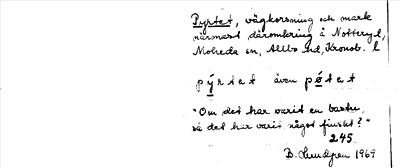 Pyrtet, vägkorsning och mark
närmast däromkring å Notteryd,
Moheda sn, Allbo hd, Kronob. l
pýrtet även pǿtet
"Om det har varit en bastu,
så det har varit något finskt?"
245
B. Lundgren 1969